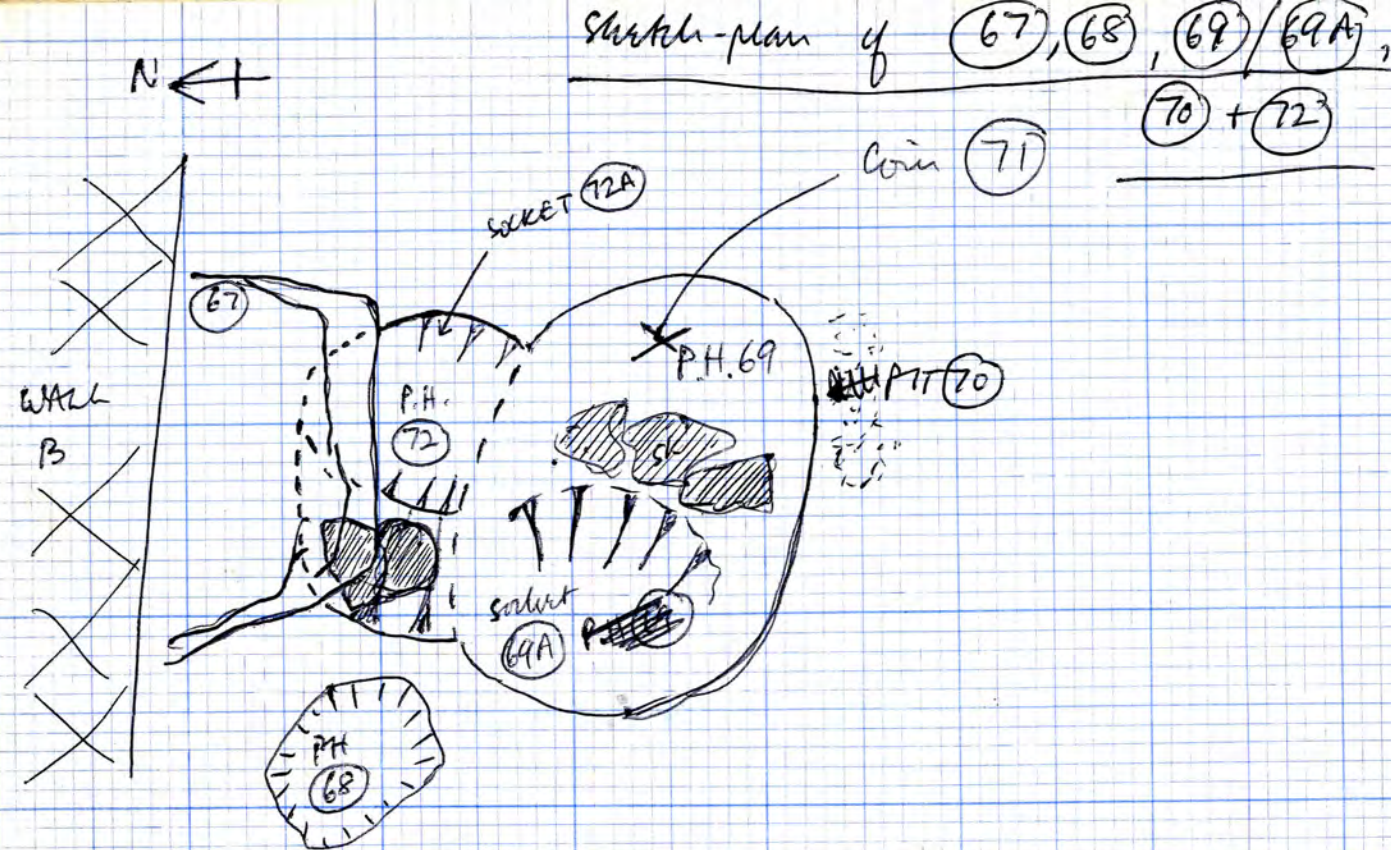 Sketch-plan of 67, 68, 69/69A,
70 + 72
N
Coin 71
SOCKET 72A
67
P.H. 69
PIT 70
WALL
B
P.H.
72
socket
69A
PH
68